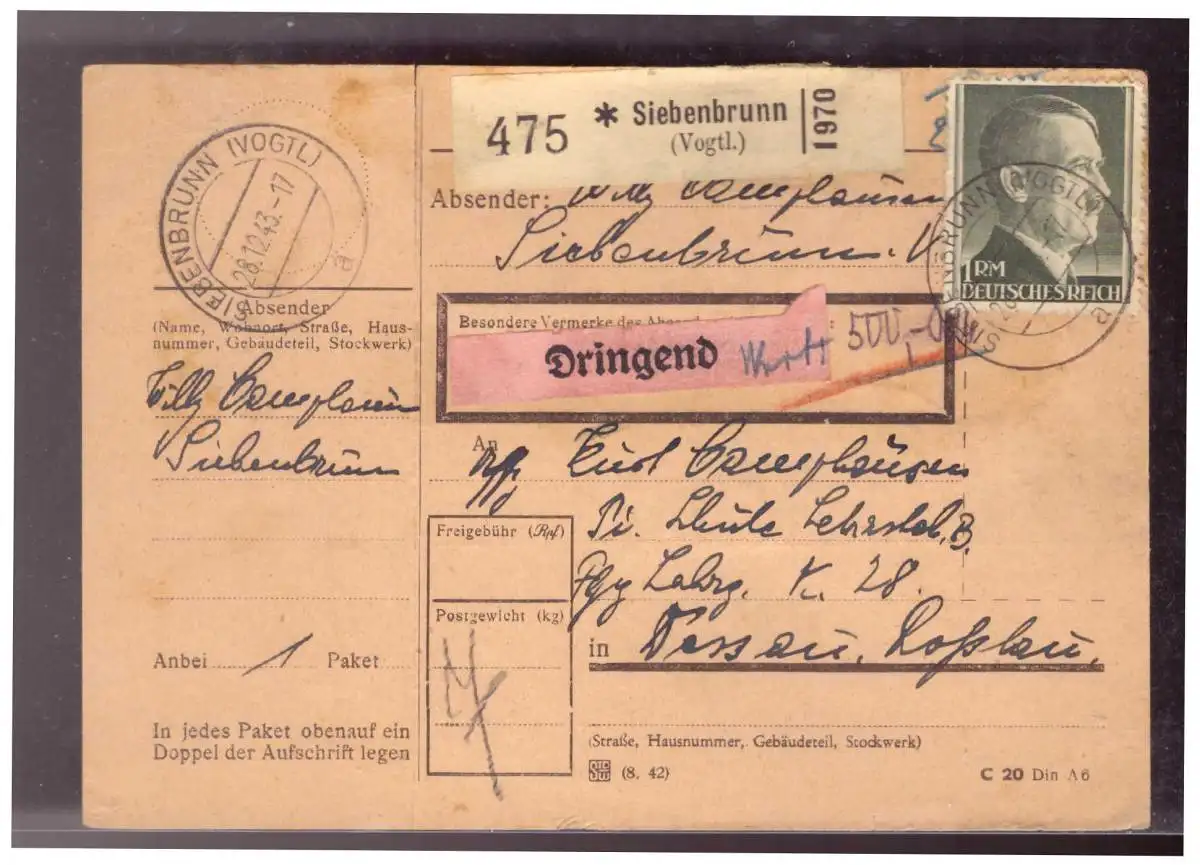 SIEBENBRUNN (VOGTL)
28.12.43.-17
a
Absender
(Name, Wohnort, Straße, Haus-
nummer, Gebäudeteil, Stockwerk)
Willy Camphausen
Siebenbrunn
Anbei 1 Paket
In jedes Paket obenauf ein
Doppel der Aufschrift legen
475 * Siebenbrunn
(Vogtl.)
1970
Absender: Willy Camphausen
Siebenbrunn V.
1 RM
DEUTSCHES REICH
SIEBENBRUNN (VOGTL)
a
Besondere Vermerke des
Dringend
Wert 500,-
An
Kurt Camphausen
Pi. Schule Lehrstab. B.
Lehrg. K. 28.
in Dessau, Roßlau.
Freigebühr (Rpf)
Postgewicht (kg)
(Straße, Hausnummer, Gebäudeteil, Stockwerk)
(8. 42)
C 20 Din A6